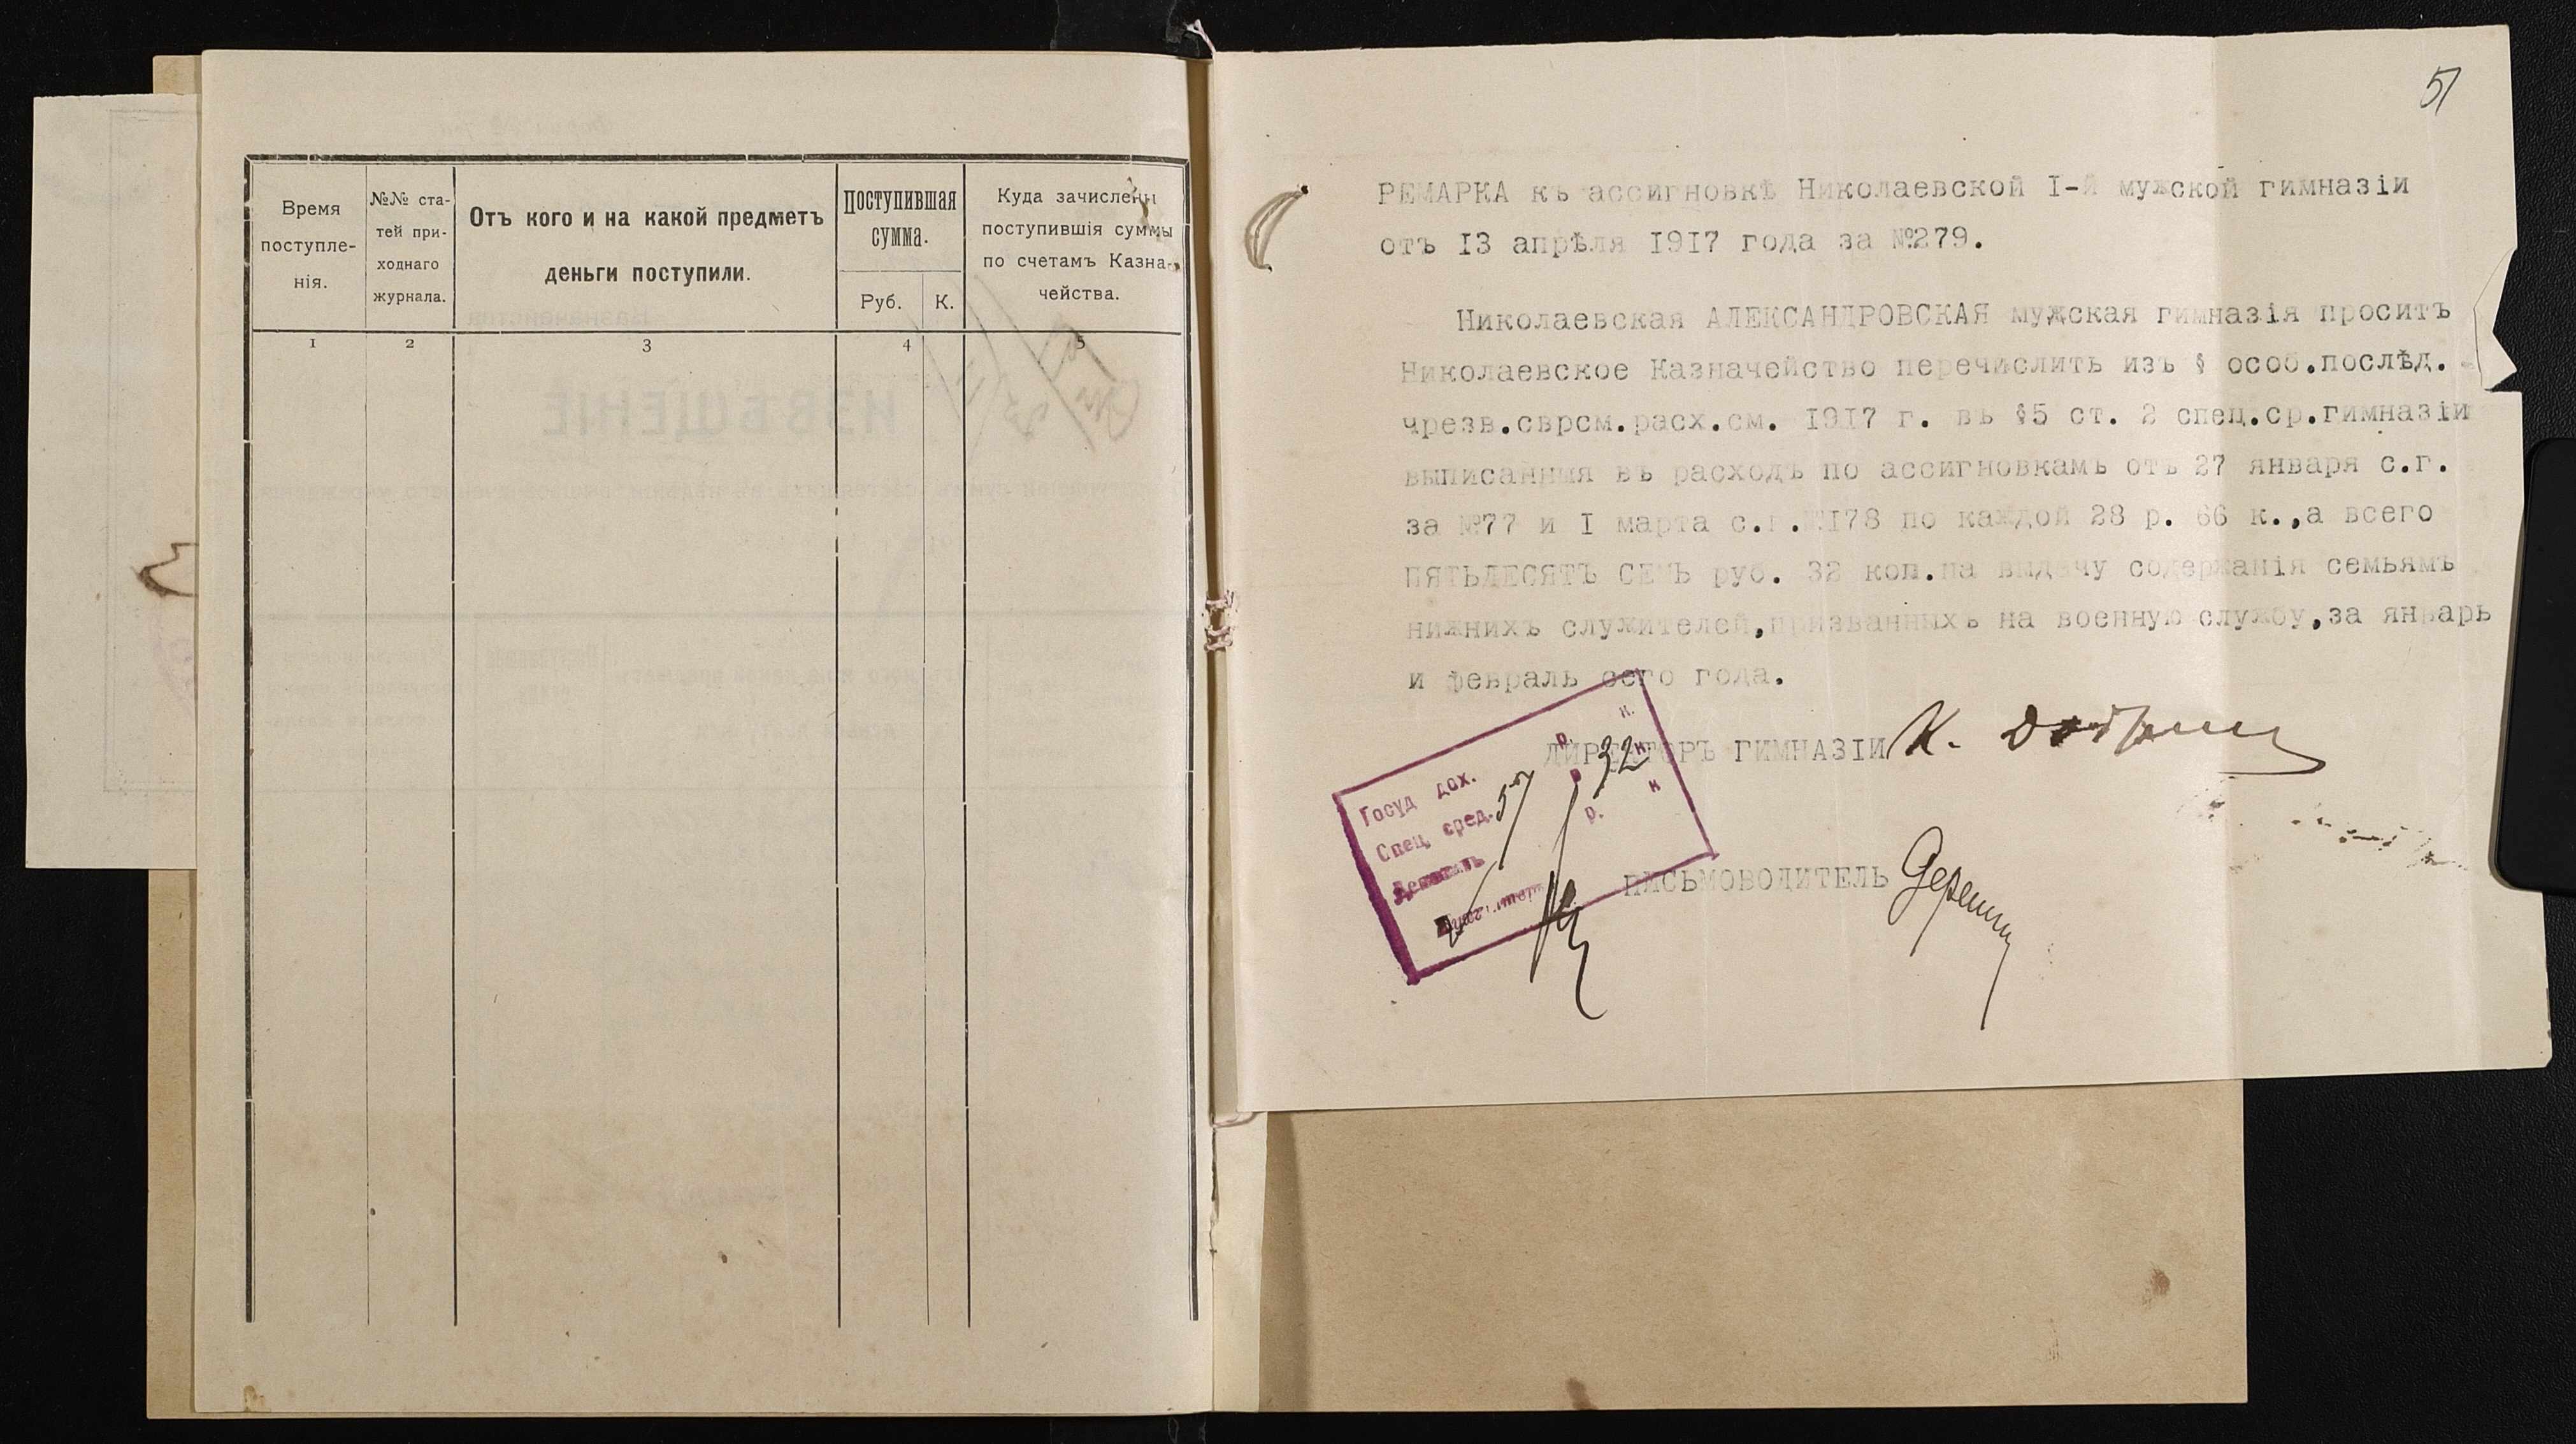 Время поступле-нія.
№№ ста-тей при-ходнаго журнала.
Отъ кого и на какой предметъ
деньги поступили.
Поступившая
сумма.
Руб. К.
Куда зачислены
поступившія суммы
по счетамъ Казна-
чейства.
1 2 3 4 5
51
РЕМАРКА къ ассигновкѣ Николаевской I-й мужской гимназіи
отъ 13 апрѣля 1917 года за №279.
Николаевская АЛЕКСАНДРОВСКАЯ мужская гимназія проситъ
Николаевское Казначейство перечислить изъ § особ.послѣд.
чрезв.сврсм.расх.см. 1917 г. въ §5 ст. 2 спец.ср.гимназіи
выписанныя въ расходъ по ассигновкамъ отъ 27 января с.г.
за №77 и I марта с.г.№178 по каждой 28 р. 66 к.,а всего
ПЯТЬДЕСЯТЪ СЕМЬ руб. 32 коп.на выдачу содержанія семьямъ
нижнихъ служителей,призванныхъ на военную службу,за январь
и февраль сего года.
ДИРЕКТОРЪ ГИМНАЗІИ К.
Госуд дох. р. к.
Спец. сред. 57 р 32 к
Депозитъ р. к
ПИСЬМОВОДИТЕЛЬ
ИЗВѢЩЕНІЕ